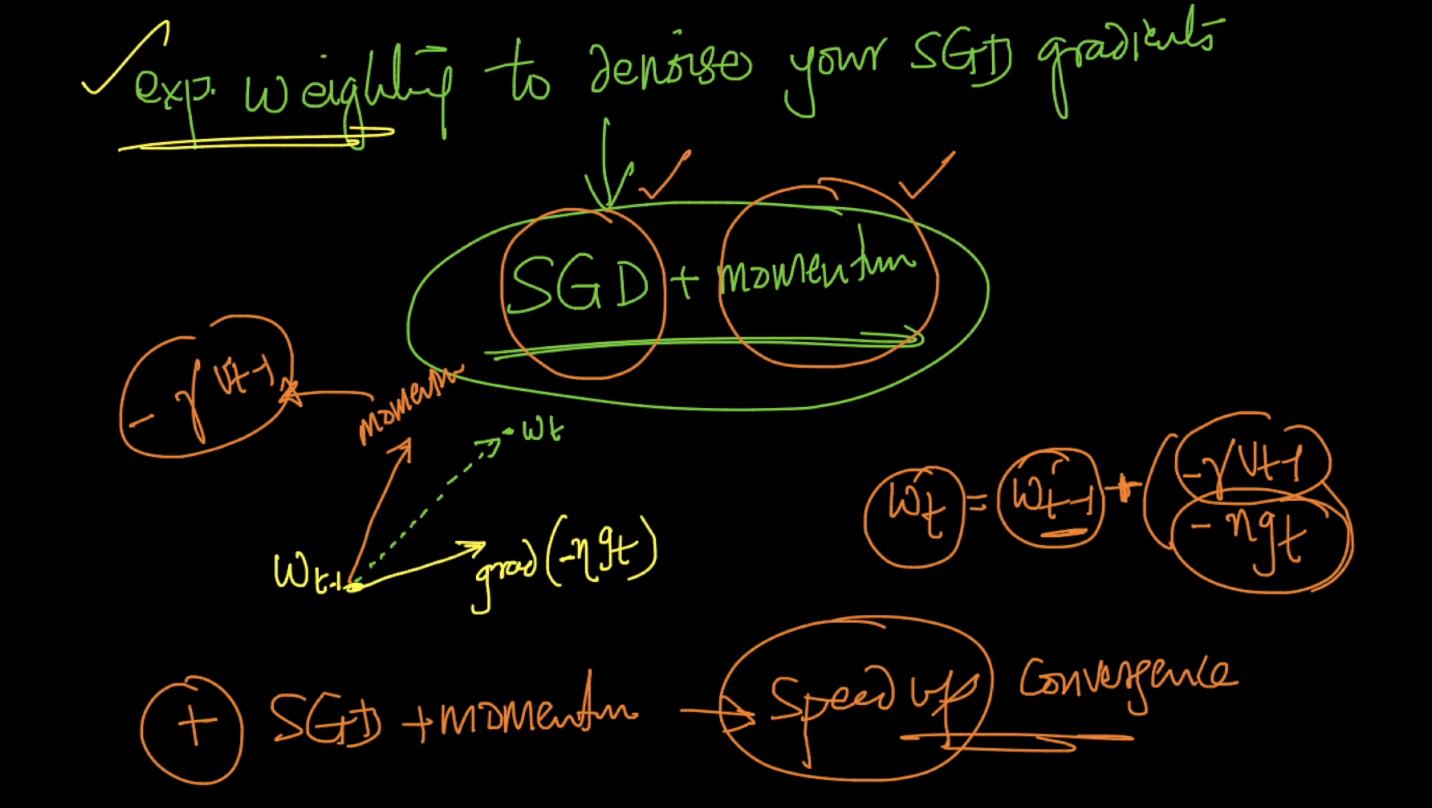 exp. weighting to denoise your SGD gradients
SGD + momentum
- γ vt-1
momentum
• wt
wt = wt-1 + (-γ vt-1
- η gt
wt-1
grad (-η gt)
+ SGD + momentum → Speed up Convergence